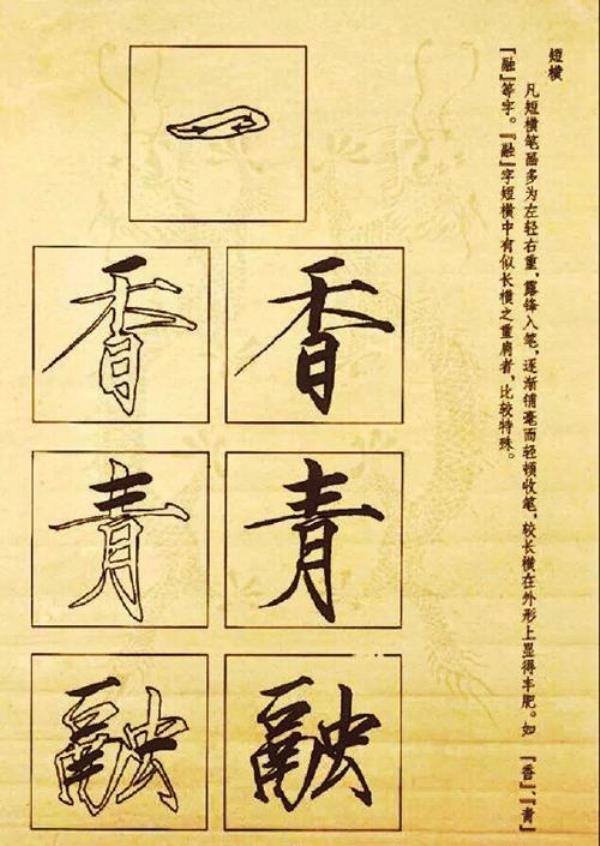 短横
凡短横笔画多为左轻右重,露锋入笔,逐渐铺毫而轻顿收笔,较长横在外形上显得丰肥。如『香』、『青』
『融』等字。『融』字短横中有似长横之重肩者,比较特殊。
一
香 香
青 青
融 融